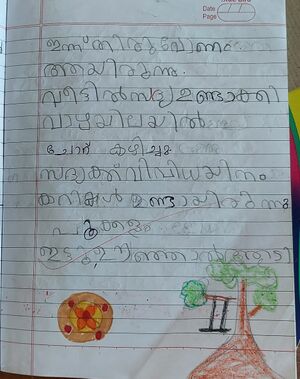 Date
Page
ഇന്ന് തിരുവോണം
ആയിരുന്നു.
വീട്ടിൽ സദ്യ ഉണ്ടാക്കി
വാഴയിലയിൽ
ചോറ് കഴിച്ചു
സദ്യക്ക് വിവിധയിനം
കറികൾ ഉണ്ടായിരുന്നു
പൂക്കളം
ഇട്ടു ഊഞ്ഞാൽ ആടി